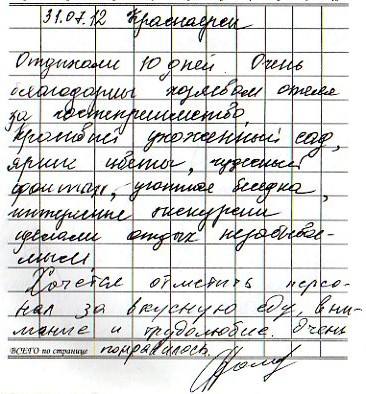 31.07.12 Красноярск
Отдыхали 10 дней. Очень
благодарны хозяевам отеля
за гостеприимство
Красивый ухоженный сад,
яркие цветы, чудесный
фонтан, уютные беседка,
интересные экскурсии
сделали отдых незабывае-
мым
Хочется отметить персо-
нал за вкусную еду, вни-
мание и трудолюбие. Очень
ВСЕГО по странице понравилось.